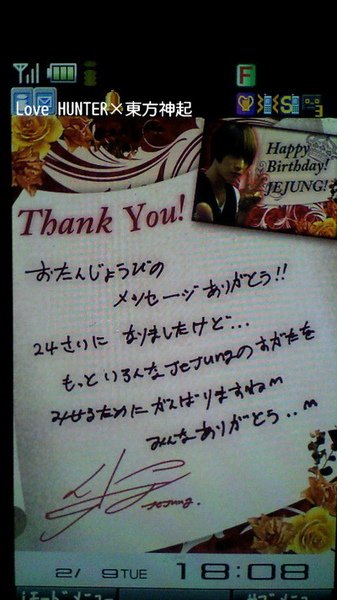 Love HUNTER×東方神起
Happy
Birthday!
JEJUNG!
Thank You!
おたんじょうびの
メッセージありがとう!!
24さいに なりましたけど...
もっといろんなJeJungのすがたを
みせるためにがんばりますねm
みんなありがとう..m
JeJung.
2/ 9 TUE 18:08
iモードメニュー サブメニュー